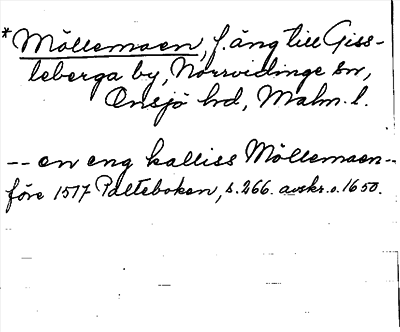 *Möllemaen, f. äng till Giss-
leberga by, Norrvidinge sn,
Onsjö hd, Malm. l.
-- en eng kalliss Möllemaen --
före 1517 Palteboken, s. 266. avskr. o. 1650.